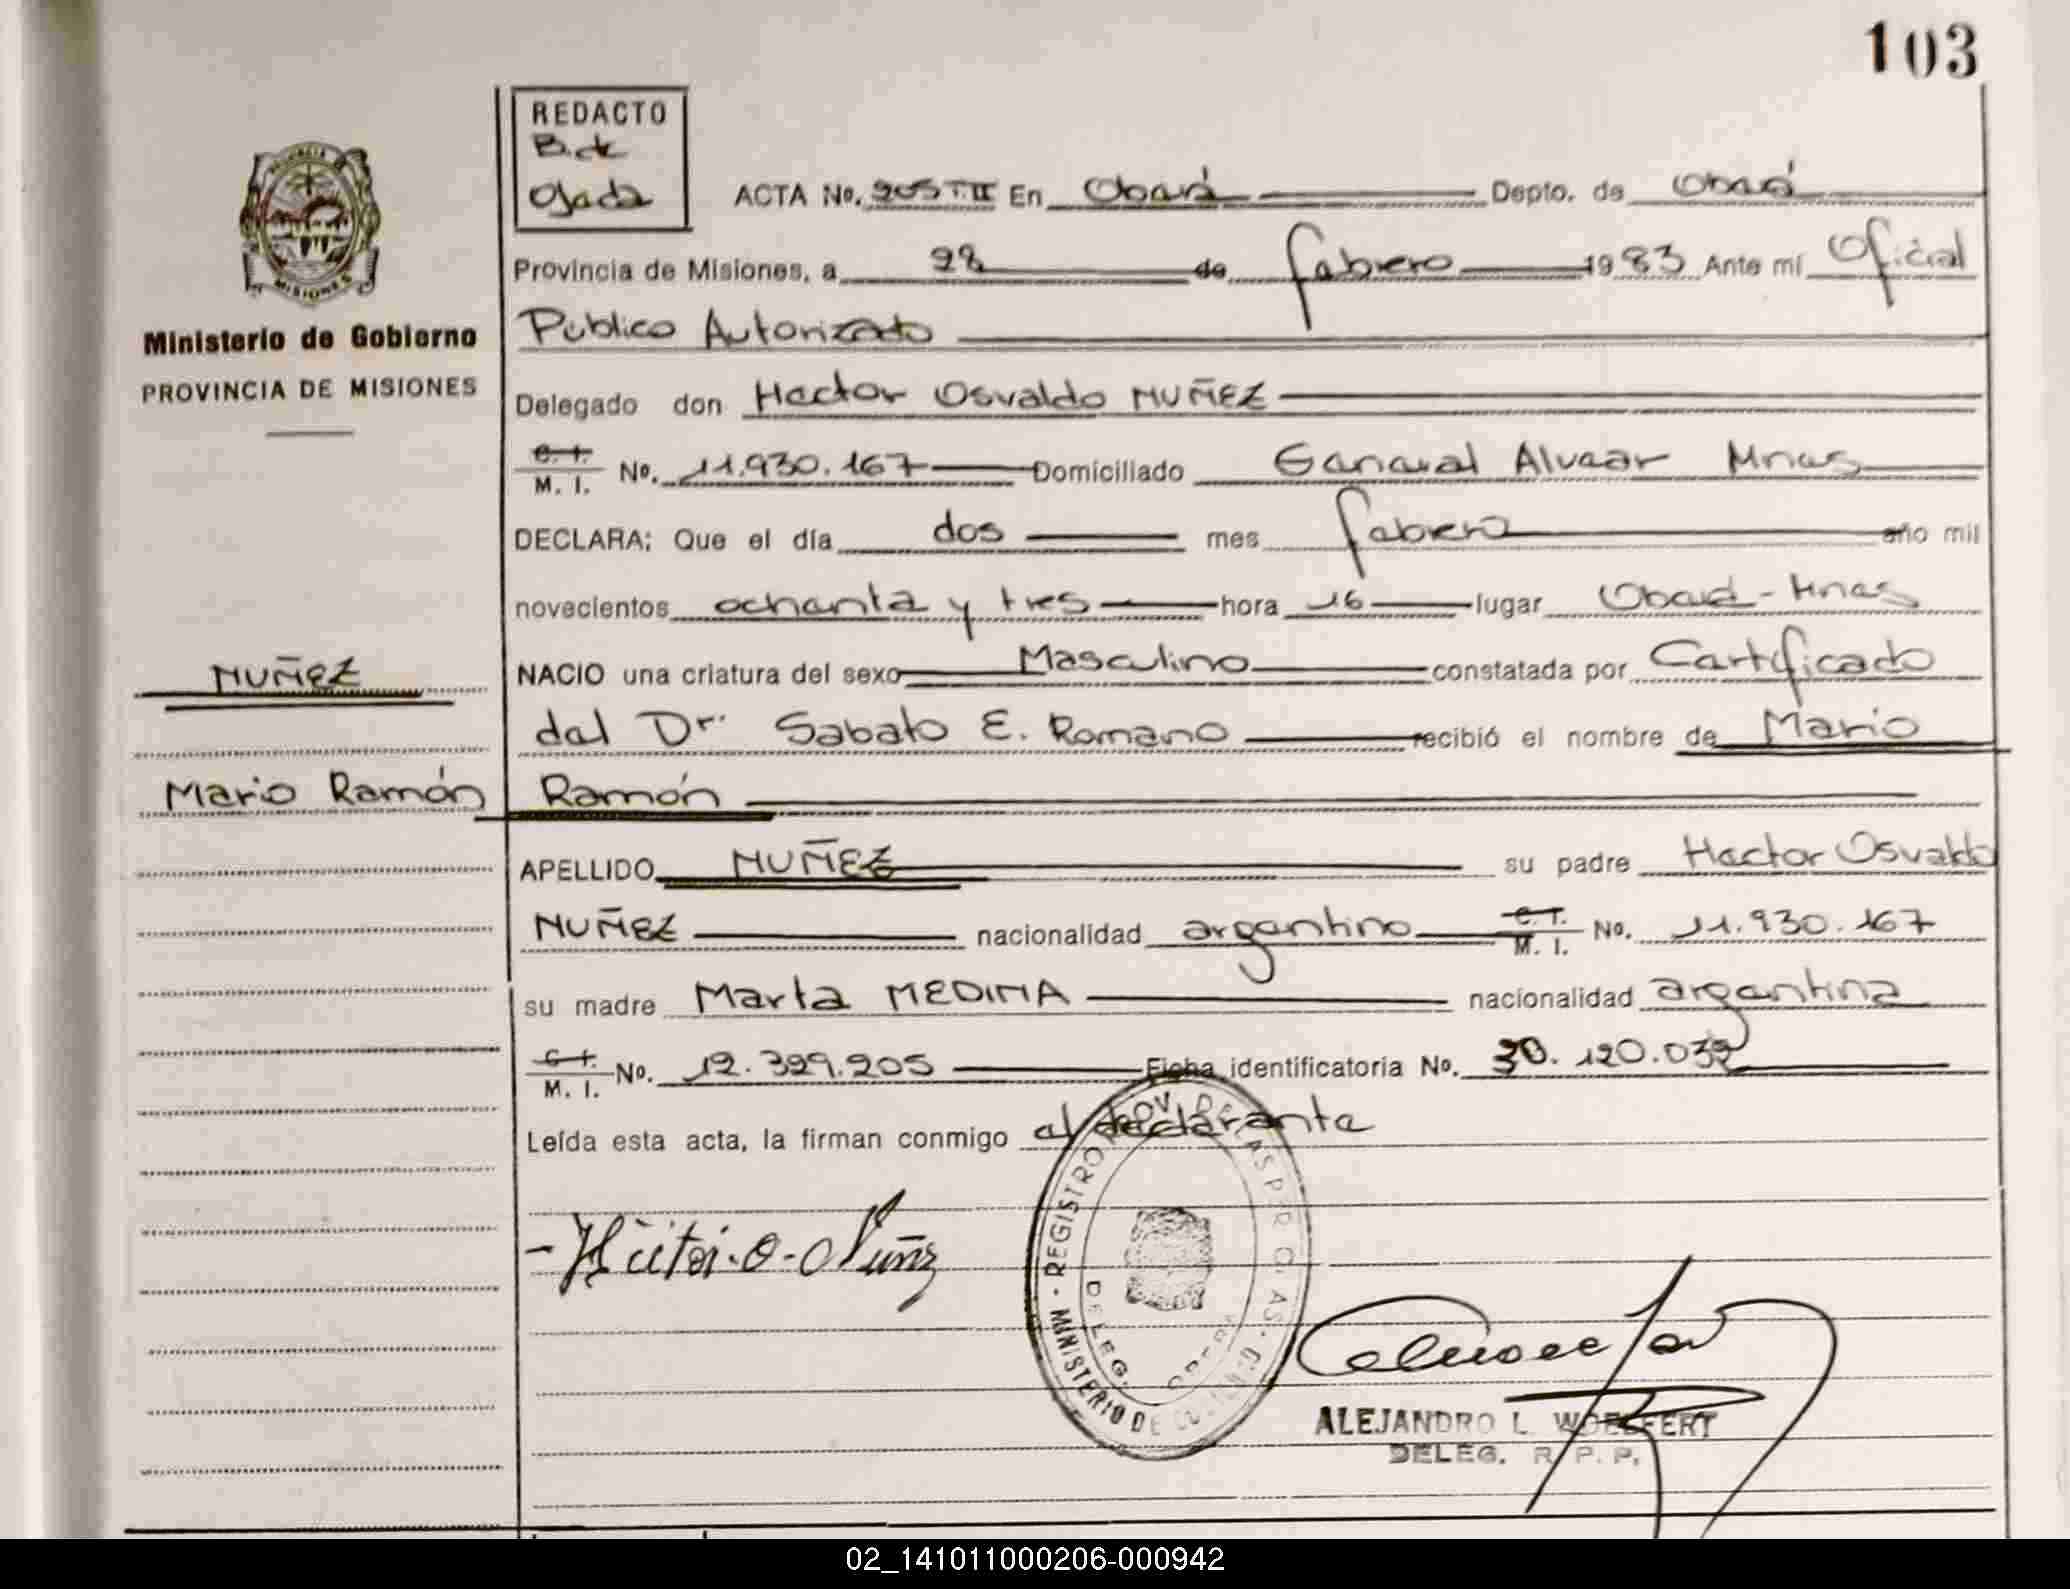 103
REDACTO
B. de
Ojeda
ACTA No. 205 T. II En Oberá Depto. de Oberá
Provincia de Misiones, a 28 de febrero 1983 Ante mí Oficial
Público Autorizado
Delegado don Hector Osvaldo NUÑEZ
C. I. M. I. No. 11.930.167 Domiciliado General Alvear Mnes
DECLARA: Que el día dos mes febrero año mil
novecientos ochenta y tres hora 16 lugar Oberá - Mnes
NACIO una criatura del sexo Masculino constatada por Certificado
del Dr. Sabato E. Romano recibió el nombre de Mario
Ramón
APELLIDO NUÑEZ su padre Hector Osvaldo
NUÑEZ nacionalidad argentino C. I. M. I. No. 11.930.167
su madre Marta MEDINA nacionalidad argentina
C. I. M. I. No. 12.329.205 Ficha identificatoria No. 30.120.032
Leída esta acta, la firman conmigo el declarante
MISIONES
Ministerio de Gobierno
PROVINCIA DE MISIONES
NUÑEZ
Mario Ramón
REGISTRO PROV. DE LAS PERSONAS
MINISTERIO DE GOBIERNO
DELEG. OBERA
ALEJANDRO L. WOELFERT
DELEG. R. P. P.
02_141011000206-000942